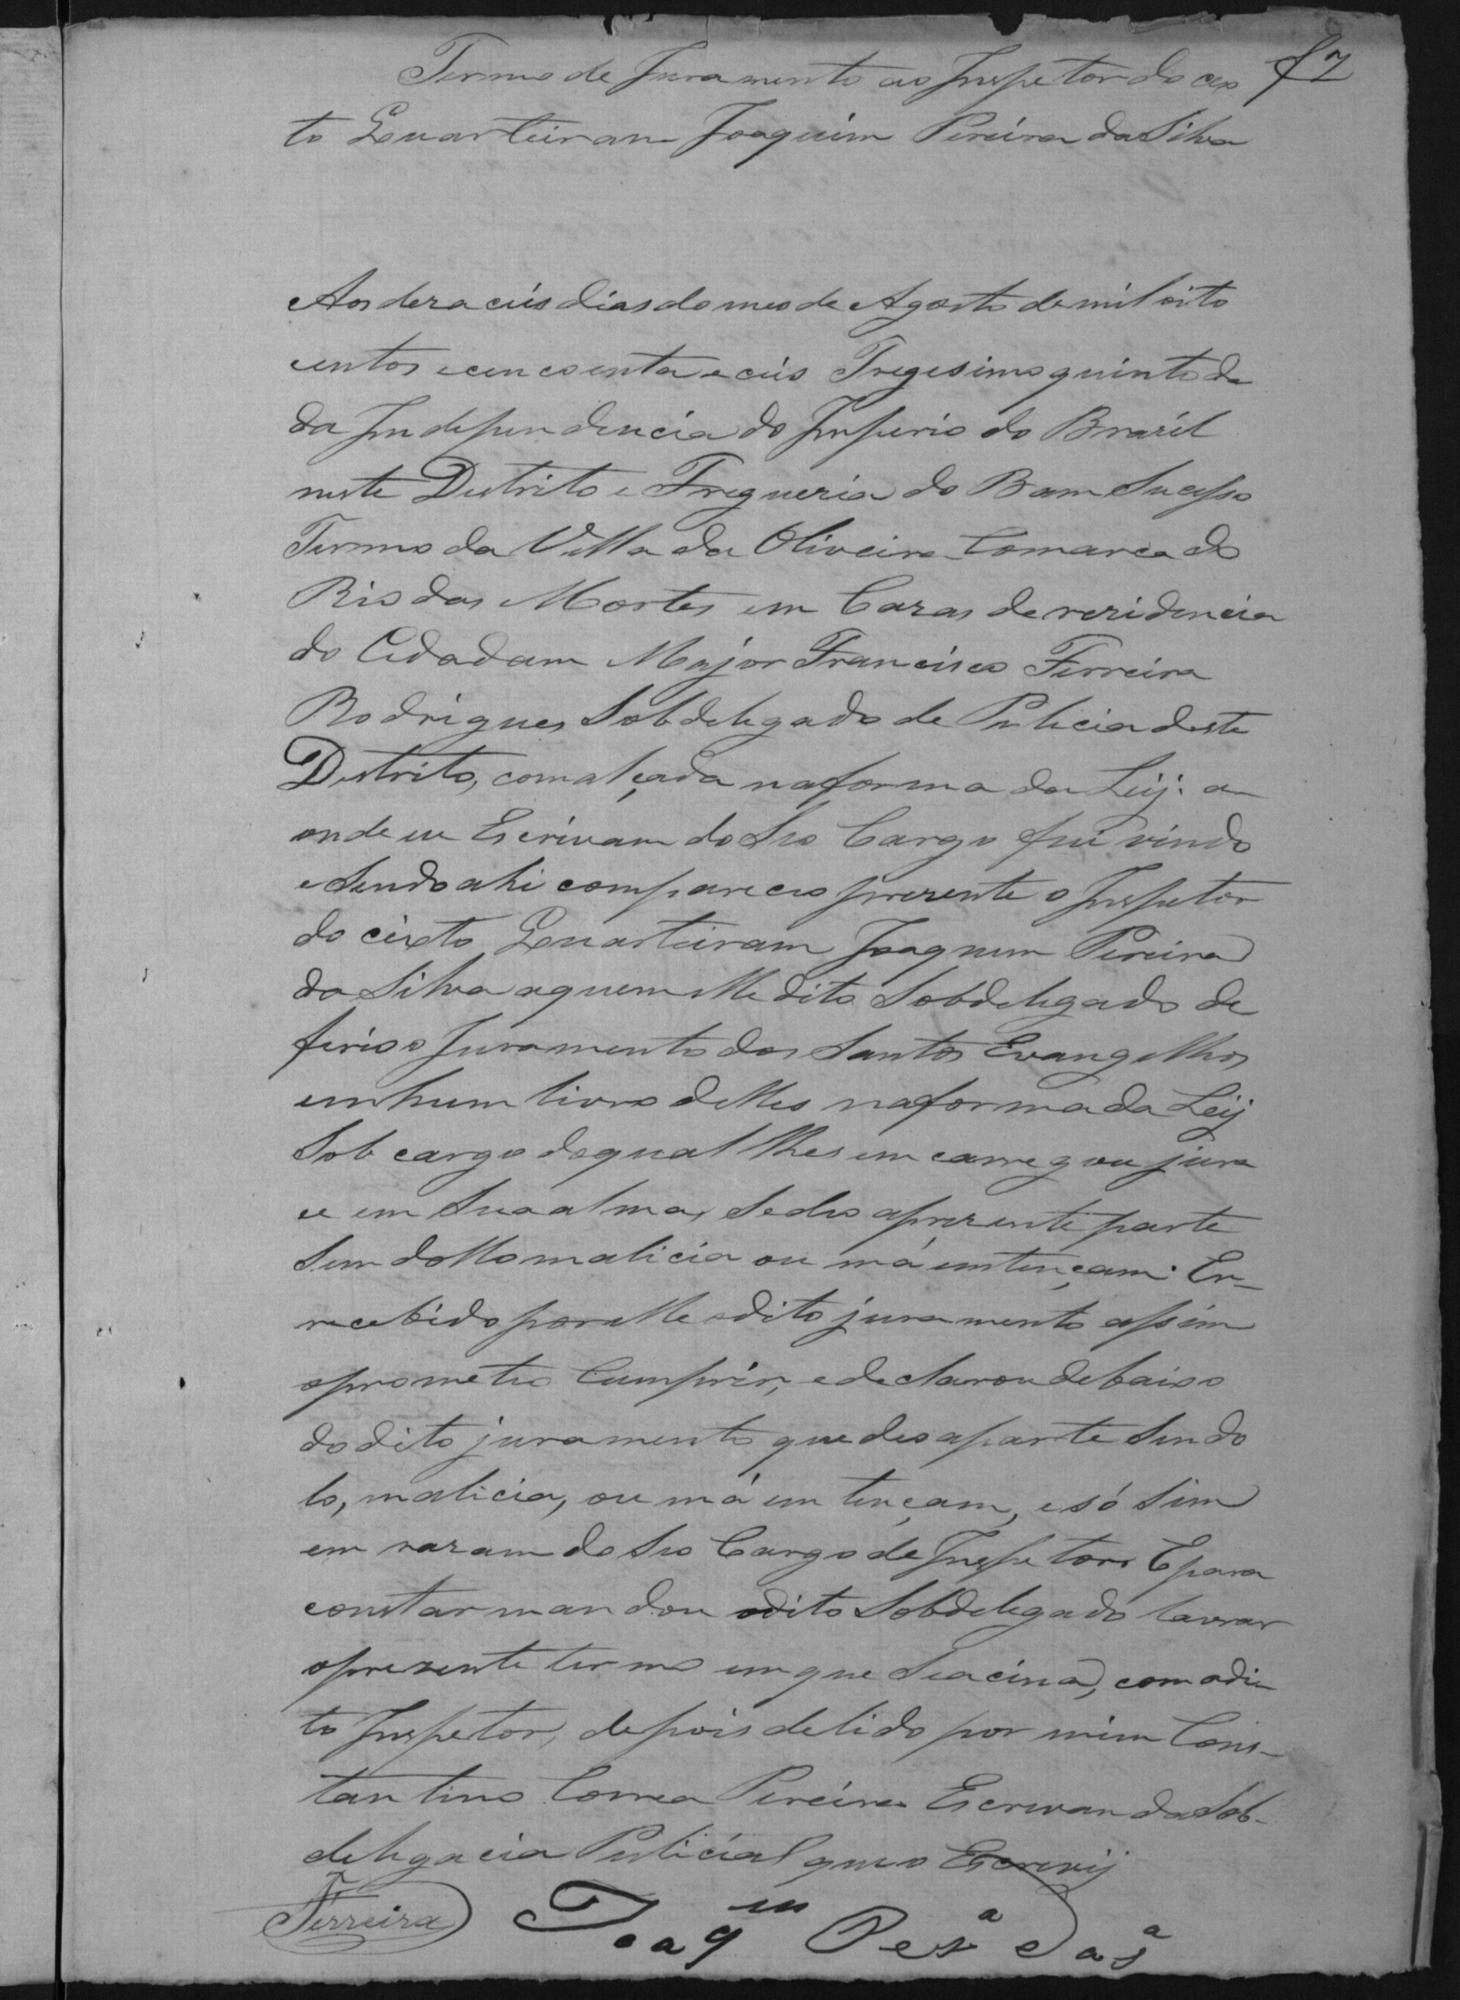 Termo de Juramento ao Inspetor do cex f 7
to Quarteiram Joaquim Pereira da Silva
Aos deza ceis dias do mes de Agosto de mil oito
centos e cencoenta e ceis Tregesimo quinto da
da Independencia do Imperio do Brazil
neste Destrito e Fregueria do Bam Sucesso
Termo da Villa da Oliveira Comarca do
Rio das Mortes em Cazas de rezidencia
do Cidadam Major Francisco Ferreira
Rodrigues Sobdelegado de Pulicia deste
Destrito, com alçada na forma da Leij. a
onde eu Escrivam do Seo Cargo fui vindo
e Sendo ahi compareceo prezente o Inspetor
do ceixto Quarteiram Joaquim Pereira
da Silva aquem elle dito Sobdelegado de
ferio o Juramento dos Santos Evangelhos
em hum livro delles na forma da Leij
Sob cargo do qual lhes em carregou jura
ce em Sua alma, Se deo aprezente parte
Sem dollo malicia ou má emtençam. E r_
recebido por elle odito juramento assim
oprometeo Cumprir, e declarou debaixo
do dito juramento que deo aparte Sem do
lo, malicia, ou má em tençam, e só Sim
em razam do Seo Cargo de Inspetor. E para
constar mandou odito Sobdelegado lavrar
oprezente termo em que Seacina, com odi
to Inspetor, depois de lido por mim Cons_
tantino Correa Pereira Escrivan da Sob_
delegacia Pulicial que o Escrevij
Ferreira Joaqm Pera da Sa